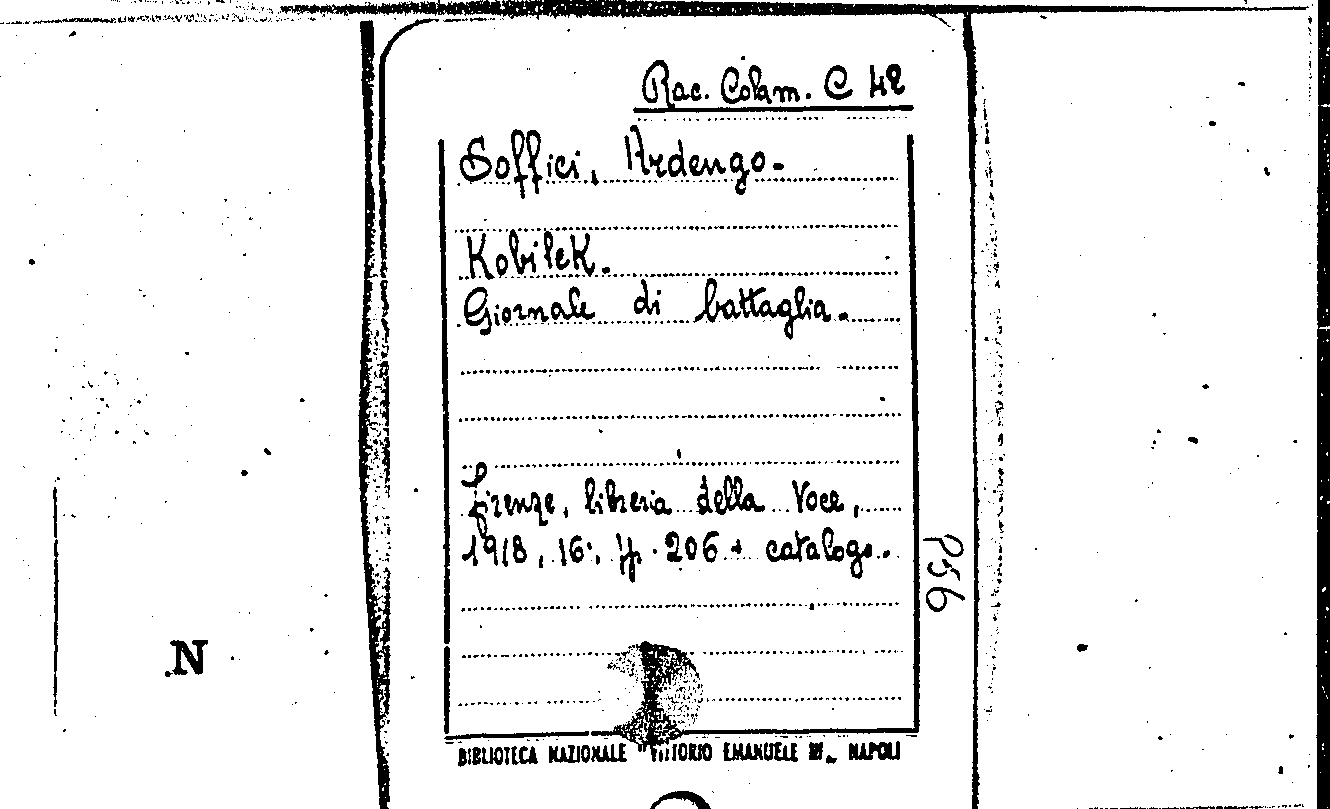 Rac. Colam. C 42
Soffici, Ardengo.
Kobilek.
Giornale di battaglia.
Firenze, libreria della Voce,
1918, 16°, pp. 206 + catalogo.
P56
N
BIBLIOTECA NAZIONALE "VITTORIO EMANUELE III„ NAPOLI